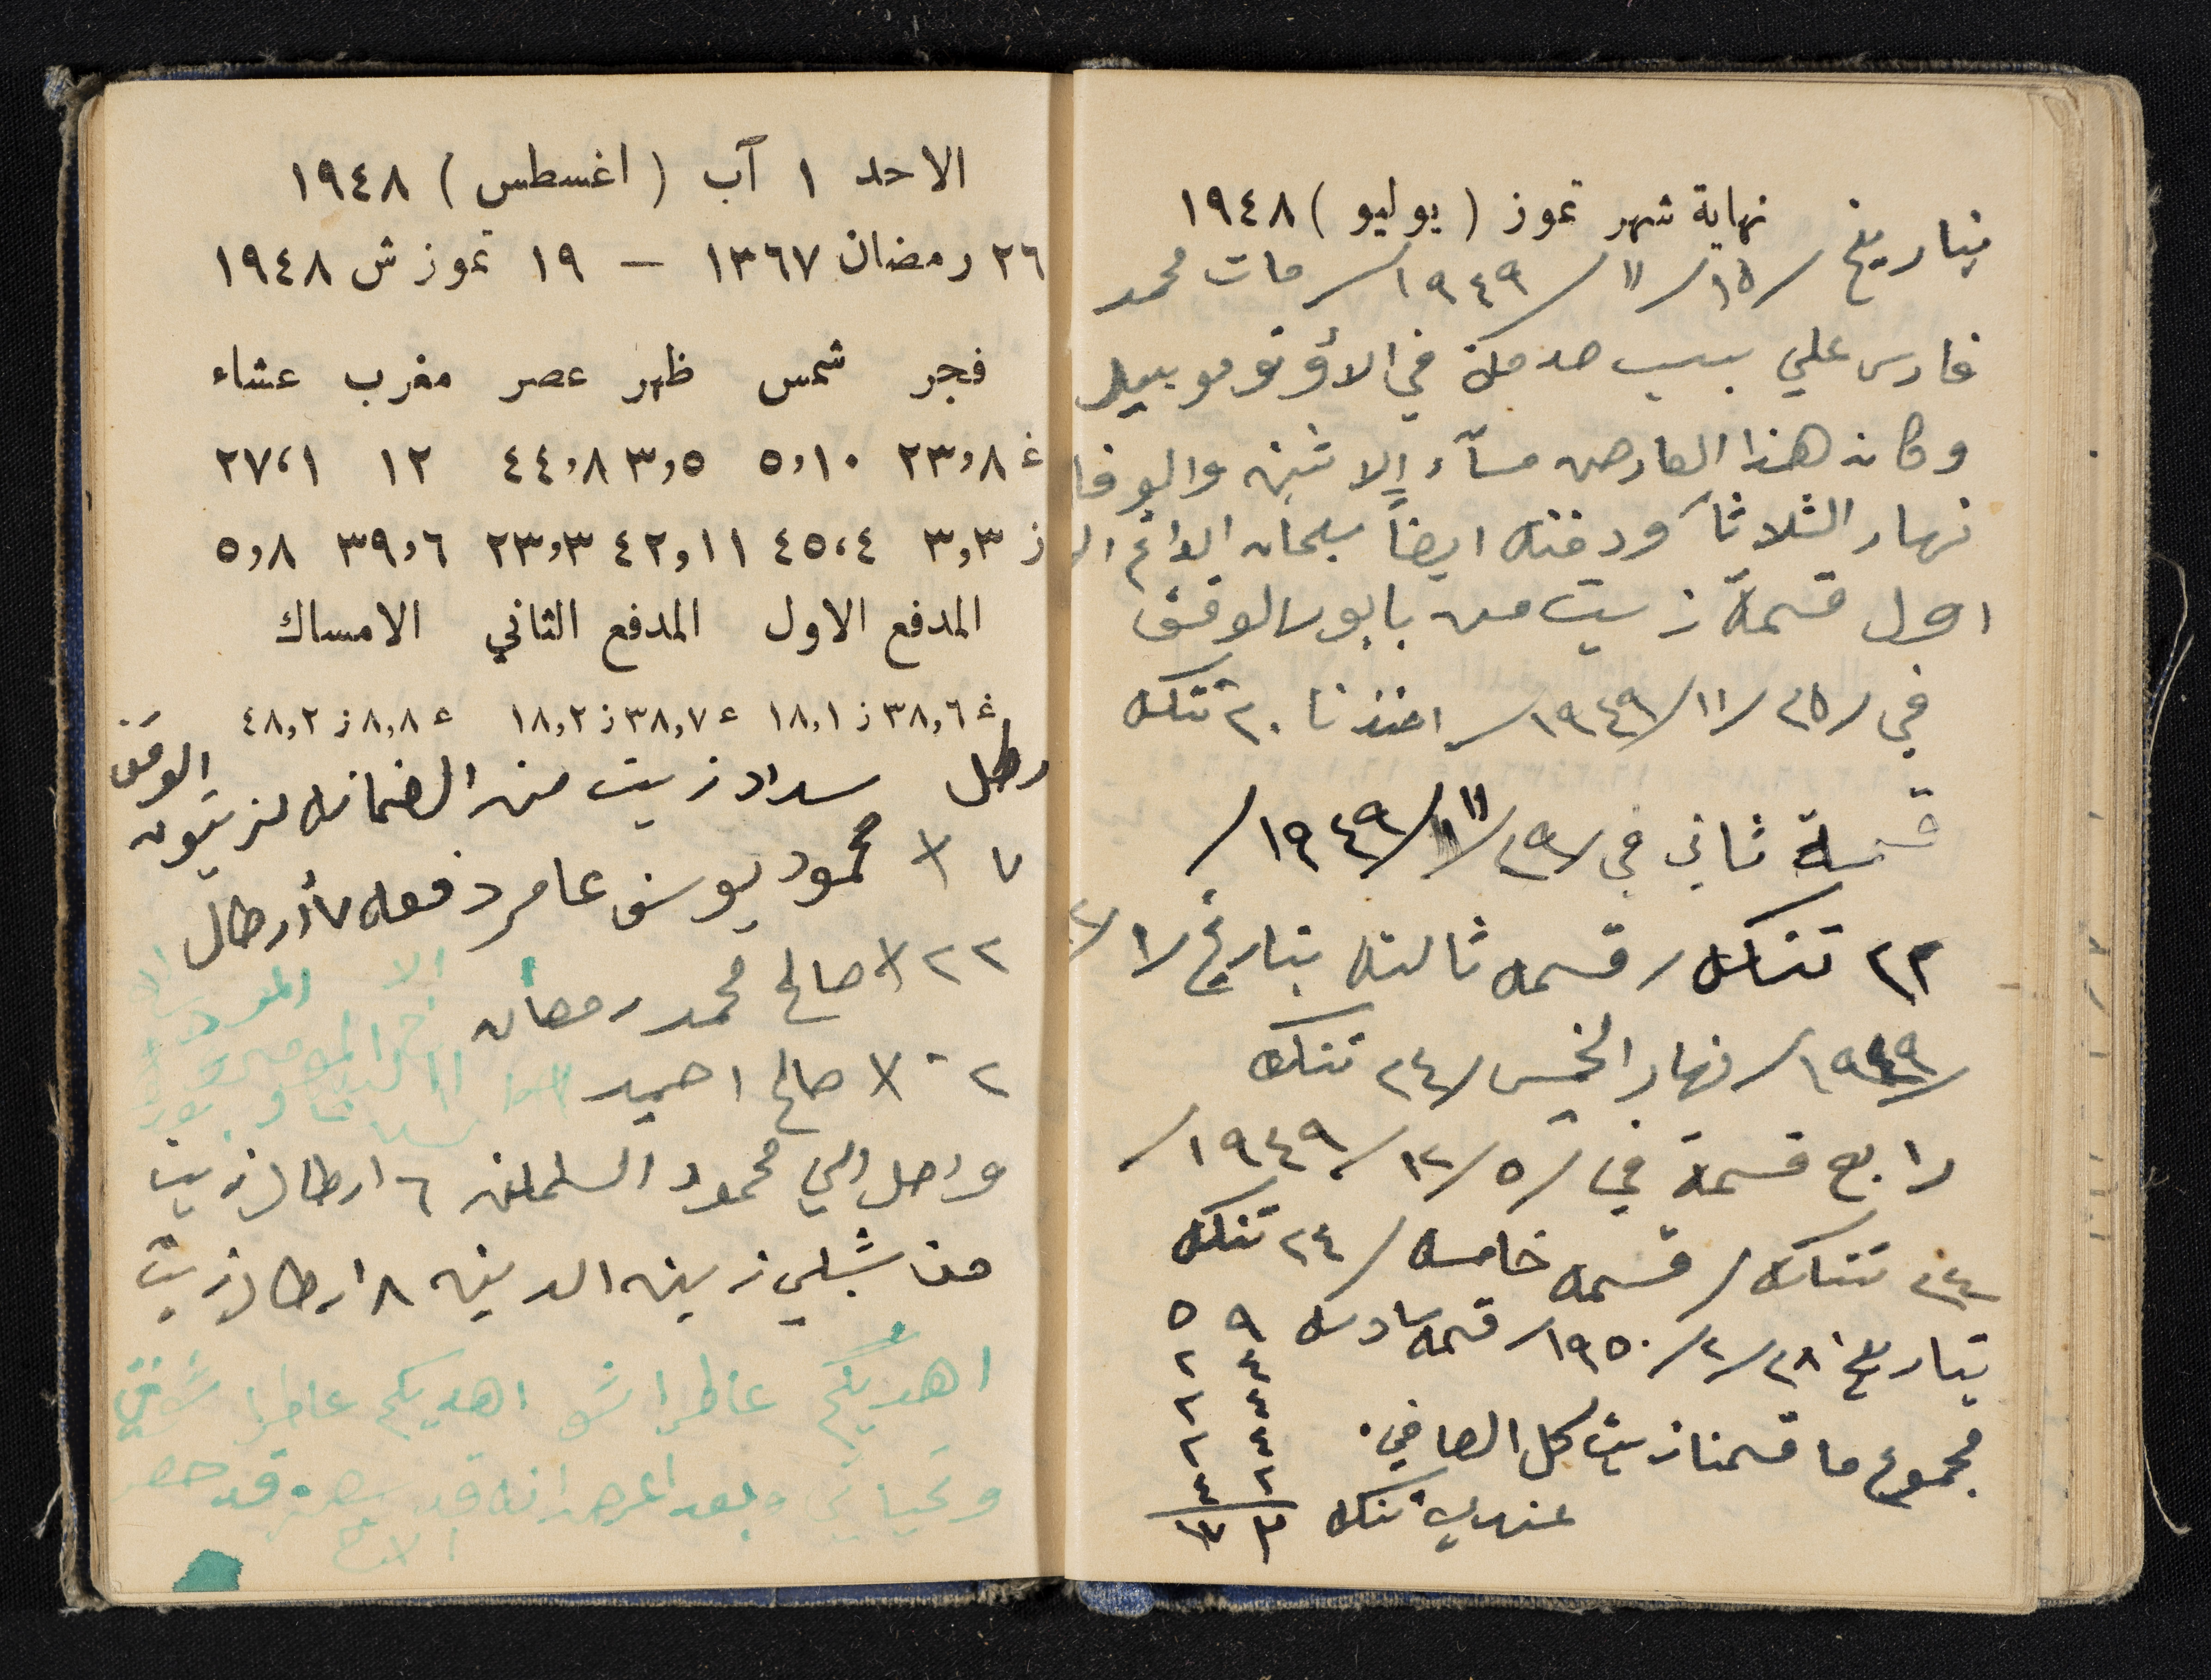 نهاية شهر تموز ( يوليو ) ١٩٤٨
بتاريخ /١٥/ ١١/ ١٩٤٩/ مات محمد
فارس علي بسبب صدمة في الأوتوموبيل
وكان هذا العارض مسآء الاثنين والوفا
نهار الثلاثآ ودفنه ايضاً سبحان الدائم
اول قسمة زيت من بابور الوقف
في /٢٥/ ١١/ ١٩٤٩/ اخذنا ٢٠ تنكه
قسمة ثاني في /٢٩/ ١١/ ١٩٤٩/
٢٣ تنكه / قسمه ثالثه بتاريخ /١/
١٩٤٩/ نهار الخميس /٢٤ تنكه
رابع قسمة في /٥/ ١٢/ ١٩٤٩/
٢٤ تنكه / قسمه خامسه / ٢٤ تنكه
بتاريخ ٢٨/ ٢/ ١٩٥٠/ قسمه سادسه ٩ ٥
٤ ٢
٤ ٢
مجموع ما قسمنا زيت كل الصافي. ٤ ٢
٢ ٤
تنكه
الاحد ١ آب ( اغسطس ) ١٩٤٨
٢٦ رمضان ١٣٦٧ – ١٩ تموز ش ١٩٤٨
فجر شمس ظهر عصر مغرب عشاء
غ ٢٣,٨ ٥,١٠ ٣,٥ ٤٤,٨ ١٢ ٢٧,١
ز ٣,٣ ٤٥,٤ ٤٢,١١ ٢٣,٣ ٣٩,٦ ٥,٨
المدفع الاول المدفع الثاني الامساك
غ ٣٨,٦ ز ١٨,١ ع ٣٨,٧ ز ١٨,٢ ع ٨,٨ ز ٤٨,٢
رطل سداد زيت من الضمانه لزيتون الوقف
٧ × محمود يوسف عامر دفعه ٧ أرطال
٢٢ × صالح محمد رمضان
٢٠ × صالح احميد
واصل الي محمود السلمان ٦ ارطال زيت
من شبلي زين الدين ٨ ارطال زيت
اهديكم عاطر اشو اهديكم عاطر
وتحياتي وبعد اعرض انه قد حضر قد حضر
الاخ